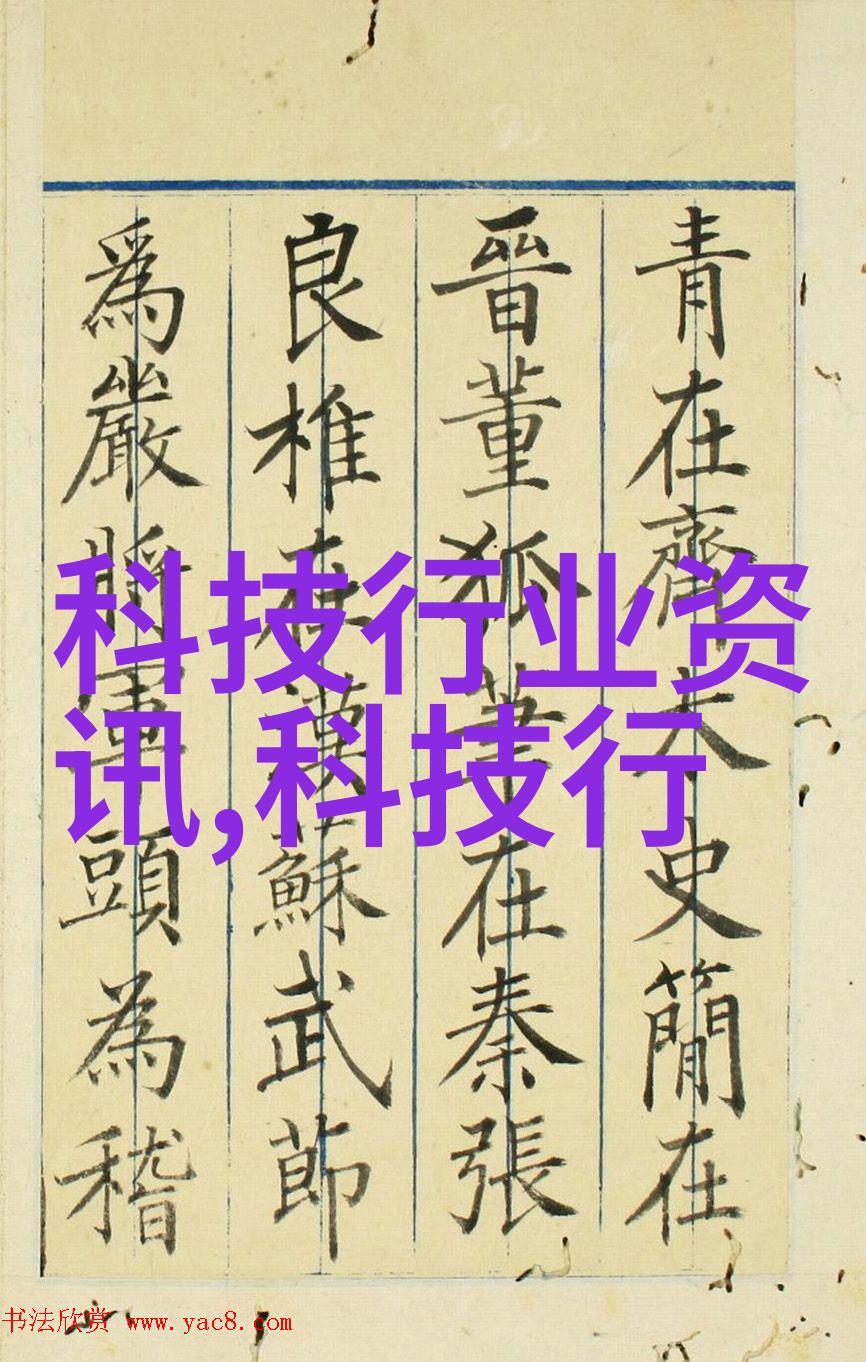 青在齊太史簡在
晉董狐筆在秦張
良椎在漢蘇武節
爲嚴將軍頭為稽
科技行业资
讯,科技行
书法欣赏 www.yac8.com